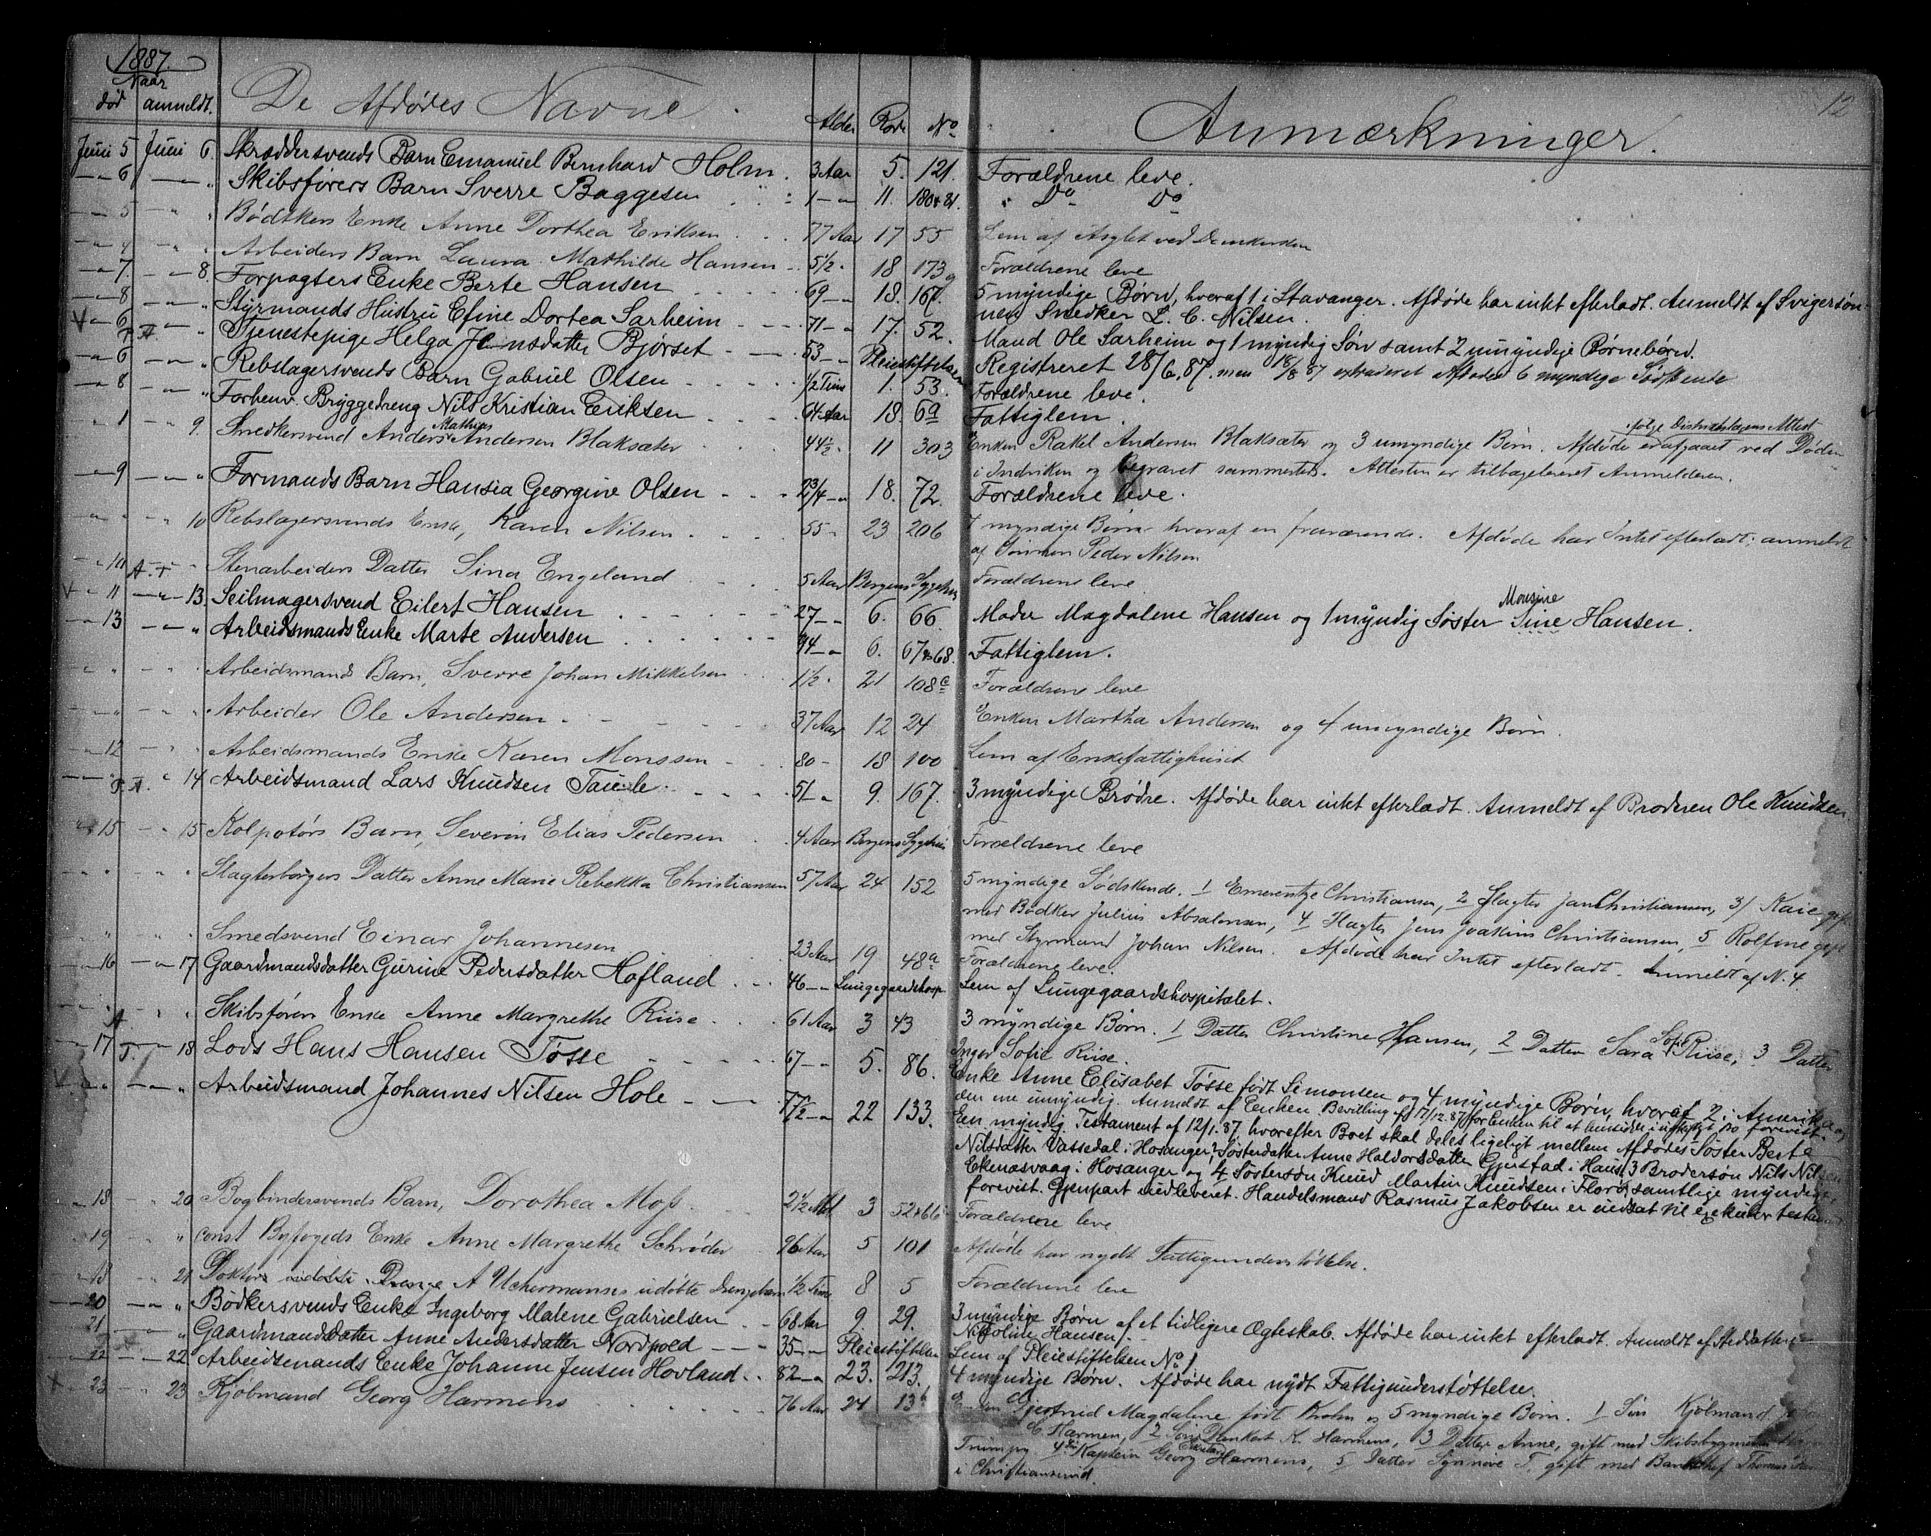 1887.
Naar
død anmeldt.
De Afdødes Navne.
Alder Rode No
Anmærkninger.
12
Juni 5 Juni 6. Skræddersvends Barn Emanuel Bernhard Holm. 3 Aar 5. 121. Forældrene leve.
" 6 " " Skibsførers Barn Sverre Baggesen 1 " 11. 180 & 81. " Do Do
" 5 " " Bødtkers Enke Anne Dorthea Eriksen 77 Aar 17 55 Lem af Asylet ved Domkirken
" 4 " " Arbeiders Barn Laura Mathilde Hansen 5½ " 18 173 a Forældrene leve
" 7. " 8. Forpagters Enke Berte Hansen 69 " 18. 167. 5 myndige Børn, hveraf 1 i Stavanger. Afdøde har intet efterladt. Anmeldt af Svigersøn-
nen Snedker L. C. Nilsen.
" 8 " " Styrmands Hustru Efine Dortea Sarheim 71 " 17. 52. Mand Ole Sarheim og 1 myndig Søn samt 2 umyndige Børnebørn.
V " 6 " " Tjenestepige Helga Jensdatter Bjørset 53 " Pleiestiftelsen Registreret 28/6.87. men 18/8 87 extraderet Afdødes 6 myndige Sødskende
" 6 " " Rebslagersvends Barn Gabriel Olsen ½ Time 1. 53. Forældrene leve.
" 8 " " Forhenv. Bryggedreng Nils Kristian Eriksen 64 Aar 18. 69 Fattiglem.
ifølge Distriktslægens Attest
" 1 " 9. Snedkersvend Anders Mathias Andersen Blaksæter 44½ " 11 303 Enken Rakel Andersen Blaksæter og 3 umyndige Børn. Afdøde er afgaaet ved Døden
i Indviken og begravet sammesteds. Attesten er tilbageleveret Anmelderen.
" 9 " " Formands Barn Hansia Georgine Olsen 2¾ " 18. 72. Forældrene leve.
" " " 10 Rebslagersvends Enke, Karen Nilsen 55 " 23 206 7 myndige Børn hveraf en fraværende. Afdøde har Intet efterladt; anmeldt
af Sønnen Peder Nilsen
" 10 " " Stenarbeiders Datter Sina Engeland 5 Aar Bergens Sygehus Forældrene leve
V " 11 " 13. Seilmagersvend Eilert Hansen 27 " 6. 66 Moder Magdalene Hansen og 1 myndig Søster Monsine Sine Hansen.
" 13 " " Arbeidsmands Enke Marte Andersen 74 " 6. 67 & 68. Fattiglem.
" " " " Arbeidsmands Barn, Sverre Johan Mikkelsen 1½ " 21 108 c Forældrene leve
" " " " Arbeider Ole Andersen 37 Aar 12 24 Enken Martha Andersen og 4 umyndige Børn.
" 12 " " Arbeidsmands Enke Karen Monssen 80 " 18 100 Lem af Enkefattighuset
" " " 14 Arbeidsmand Lars Knudsen Taule 51 " 9. 167. 3 myndige Brødre. Afdøde har intet efterladt. Anmeldt af Broderen Ole Knudsen.
" 15 " 15 Kolportørs Barn, Severin Elias Pedersen 4 Aar Bergens Sygehus Forældrene leve
" " " " Slagterborgers Datter Anne Marie Rebekka Christiansen 57 Aar 24 152 5 myndige Sødskende. 1 Emerentze Christiansen, 2 Slagter Jan Christiansen, 3) Kaie gift
med Bødker Julius Absalonsen, 4 Slagter Jens Joakim Christiansen, 5 Rolfine gift
med Styrmand Johan Nilsen. Afdøde har Intet efterladt. Anmeldt af N. 4.
" " " " Smedsvend Einar Johannesen 23 Aar 19 48a Forældrene leve.
" 16 " 17 Gaardmandsdatter Gurine Pedersdatter Hofland 46 " Lungegaardshosp. Lem af Lungegaardshospitalet.
" " " " Skibsførers Enke Anne Margrethe Riise 61 Aar 3 43 3 myndige Børn. 1 Datter Christine Hansen, 2 Datter Sara Sofie Riise, 3 Datter
Inger Sofie Riise.
" 17 " 18 Lods Hans Hansen Tosse 67 " 5. 86. Enke Anne Elisabet Tosse født Simonsen og 4 myndige Børn, hveraf 2 i Amerika og
den ene umyndig. Anmeldt af Enken. Bevilling af 17/12.87 for Enken til at hensidde i uskiftet Bo forevist.
" " " " Arbeidsmand Johannes Nilsen Hole 77½ " 22 133. Een myndig. Testament af 12/1.87 hvorefter Boet skal deles ligeligt mellem Afdødes Søster Berte
Nilsdatter Vassedal i Hosanger, 2 Søsterdatter Anne Haldorsdatter Gjerstad i Haus, 3 Brodersøn Nils Nilsen
Ekenæsvaag i Hosanger og 4 Søstersøn Knud Martin Knudsen i Florø, samtlige myndige,
forevist. Gjenpart udleveret. Handelsmand Rasmus Jakobsen er indsat til
" 18 " 20 Bogbindersvends Barn, Dorothea Moss 2½ Md 3 52 & 66 Forældrene leve
" 19 " " const Byfogeds Enke Anne Margrethe Schrøder 96 Aar 5 101 Afdøde har nydt Fattigunderstøttelse.
" 19 " 21 Doktor A Uchermanns udøbte Drengebarn ½ Time 8 5 Forældrene leve
" 20 " " Bødkersvends Enke Ingeborg Malene Gabrielsen 68 Aar 9. 29. 3 myndige Børn af et tidligere Ægteskab. Afdøde har intet efterladt. Anmeldt af Steddatter
Nikoline Hansen.
" 21 " " Gaardmandsdatter Anne Andersdatter Nordpold 35 " Pleiestiftelsen Lem af Pleiestiftelsen No 1
" 22 " 22 Arbeidsmands Enke Johanne Jensen Hovland 82 " 23. 213. 4 myndige Børn. Afdøde har nydt Fattigunderstøttelse.
x " 23 " 23 Kjøbmand Georg Harmens 76 Aar 24 13b Magdalene født Krohn og 5 myndige Børn. 1 Søn Kjøbmand
C Harmen, 2 Søn Dankert K. Harmens, 3 Datter Anne, gift med Skibsbygmester
Trumpy 4de Kaptein Georg Harmens, 5 Datter Synnøve T. gift med Bankchef Thomas
i Christianssund.